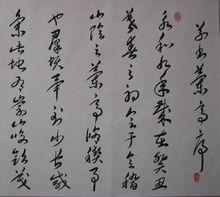 蘭亭序
永和九年歲在癸丑
暮春之初會于會稽
山陰之蘭亭脩禊事
也羣賢畢至少長咸
集此地有崇山峻領茂